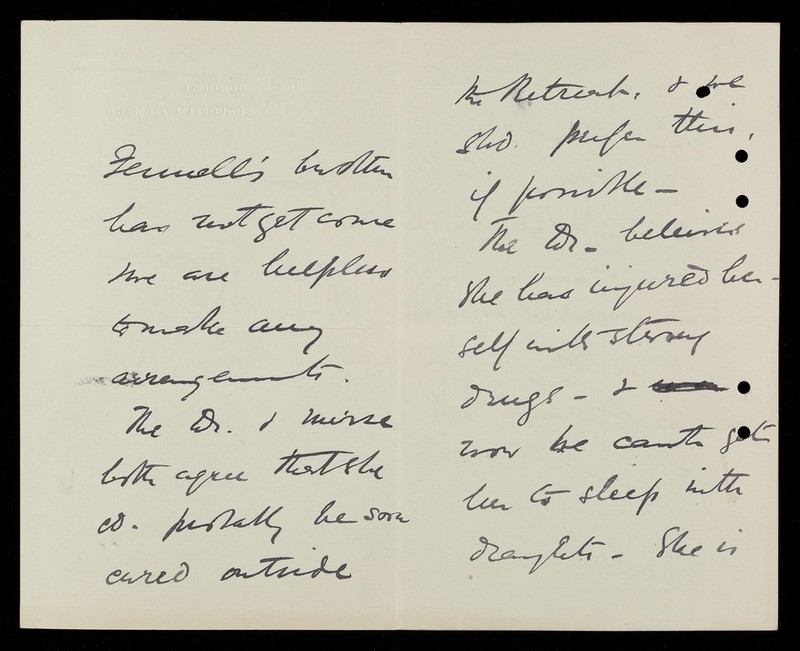 Fennell's brother
has not yet come
& we are helpless
to make any
arrangements.
The Dr. & nurse
both agree that she
cd. probably be soon
cured outside
the Retreat, & we
shd. prefer this,
if possible -
The Dr - believes
she has injured her-
self with strong
drugs - &
now he can't get
her to sleep with
draughts - She is